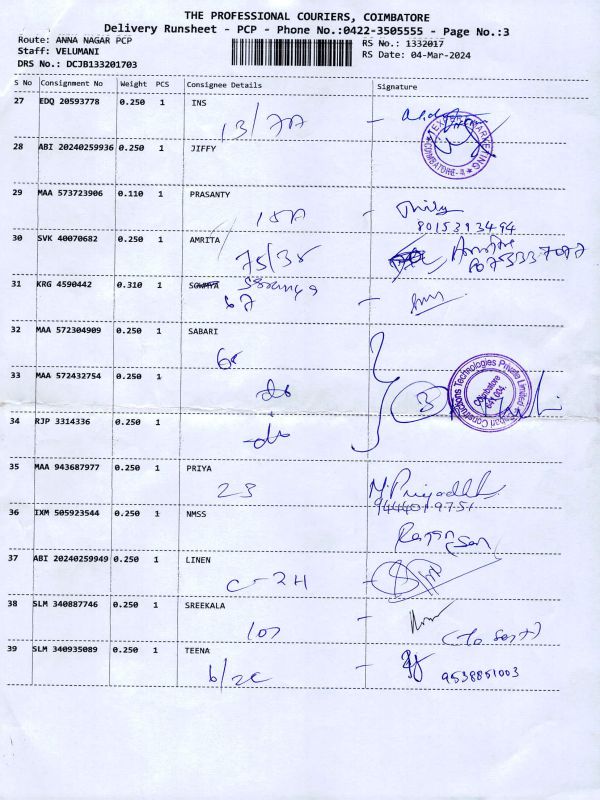 THE PROFESSIONAL COURIERS, COIMBATORE
Delivery Runsheet - PCP - Phone No.:0422-3505555 - Page No.:3
Route: ANNA NAGAR PCP
RS No.: 1332017
Staff: VELUMANI
RS Date: 04-Mar-2024
DRS No.: DCJB133201703
S No Consignment No Weight PCS Consignee Details Signature
27 EDQ 20593778 0.250 1 INS
13/7A -
28 ABI 20240259936 0.250 1 JIFFY
TEXTILE MARKETING COIMBATORE-4
29 MAA 573723906 0.110 1 PRASANTY
15A -
8015393494
30 SVK 40070682 0.250 1 AMRITA
75/35
31 KRG 4590442 0.310 1 SOWMYA
67 -
32 MAA 572304909 0.250 1 SABARI
68
33 MAA 572432754 0.250 1
do
3
Sabari Constructions Technologies Private Limited Coimbatore 641 004.
34 RJP 3314336 0.250 1
-do
35 MAA 943687977 0.250 1 PRIYA
23 M. Priyadh
9444019751
36 IXM 505923544 0.250 1 NMSS
37 ABI 20240259949 0.250 1 LINEN
C-2H -
38 SLM 340887746 0.250 1 SREEKALA
107 -
39 SLM 340935089 0.250 1 TEENA
b/2C - 9538851003